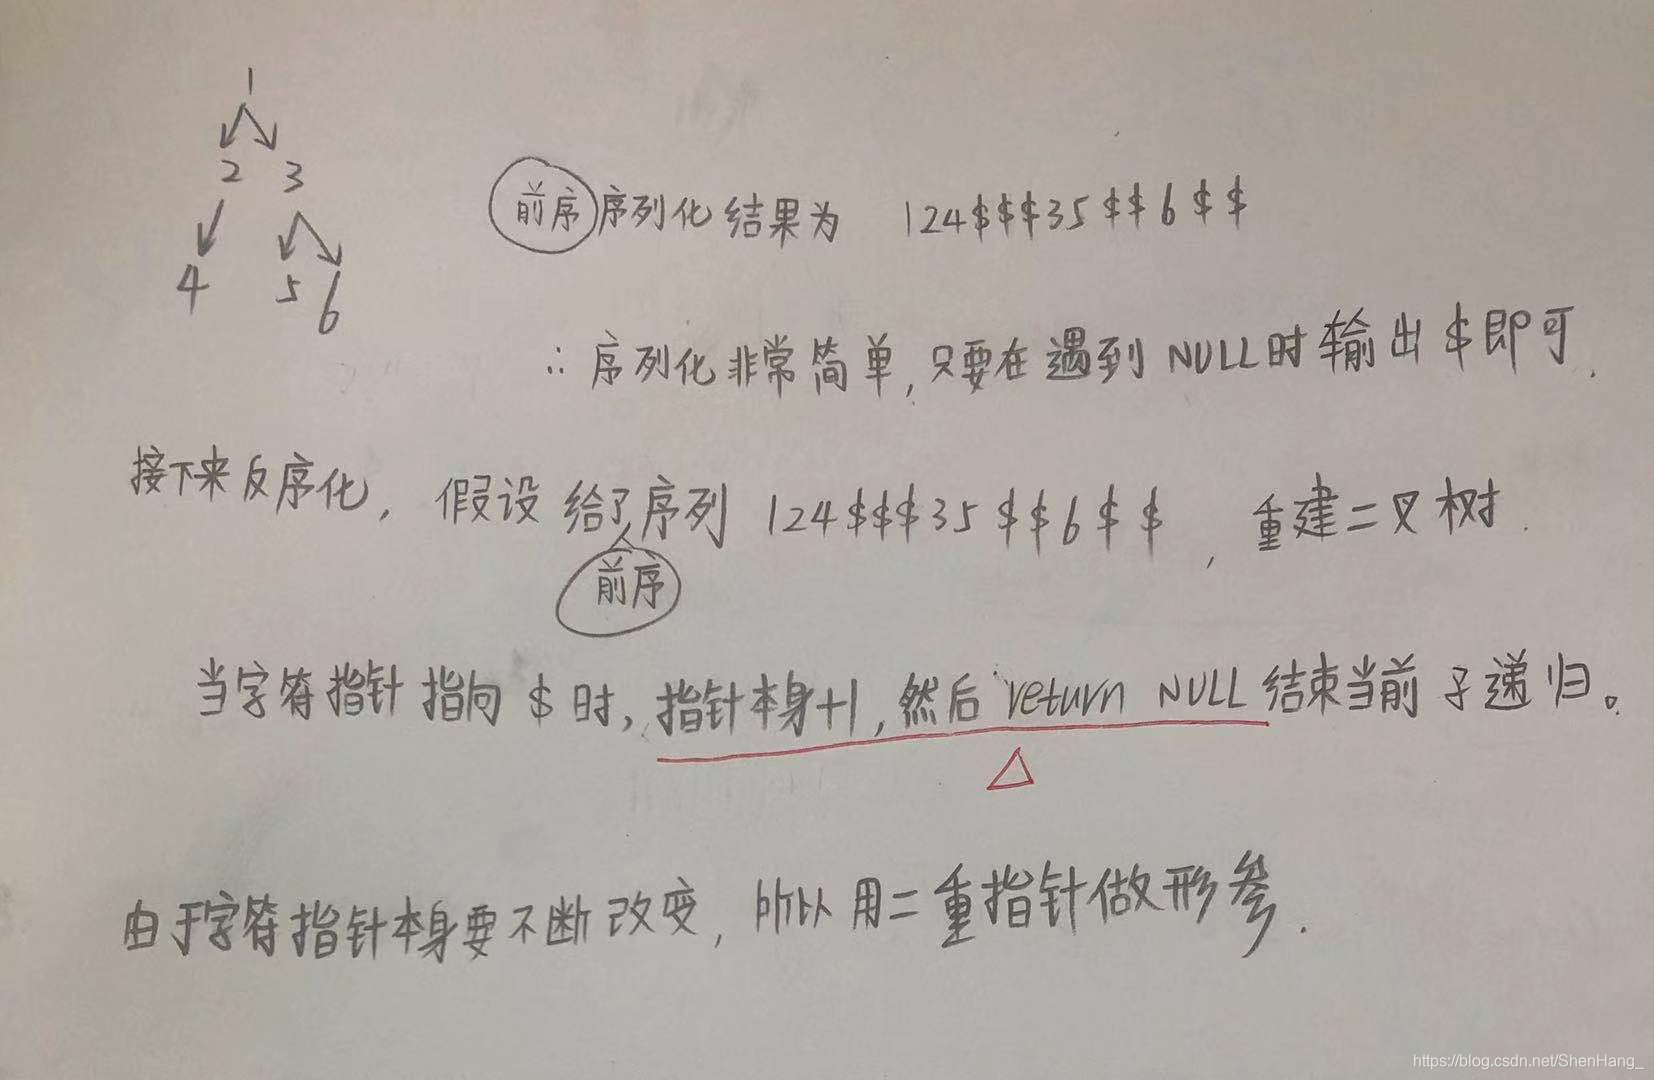 1
2 3
4 5 6
前序 序列化结果为 124$$$35$$6$$
∴ 序列化非常简单,只要在遇到 NULL时输出 $即可.
接下来反序化, 假设给了序列 124$$$35$$6$$ , 重建二叉树.
前序
当字符指针指向 $ 时, 指针本身+1, 然后 return NULL 结束当前子递归。
由于字符指针本身要不断改变, 所以用二重指针做形参.
https://blog.csdn.net/ShenHang_